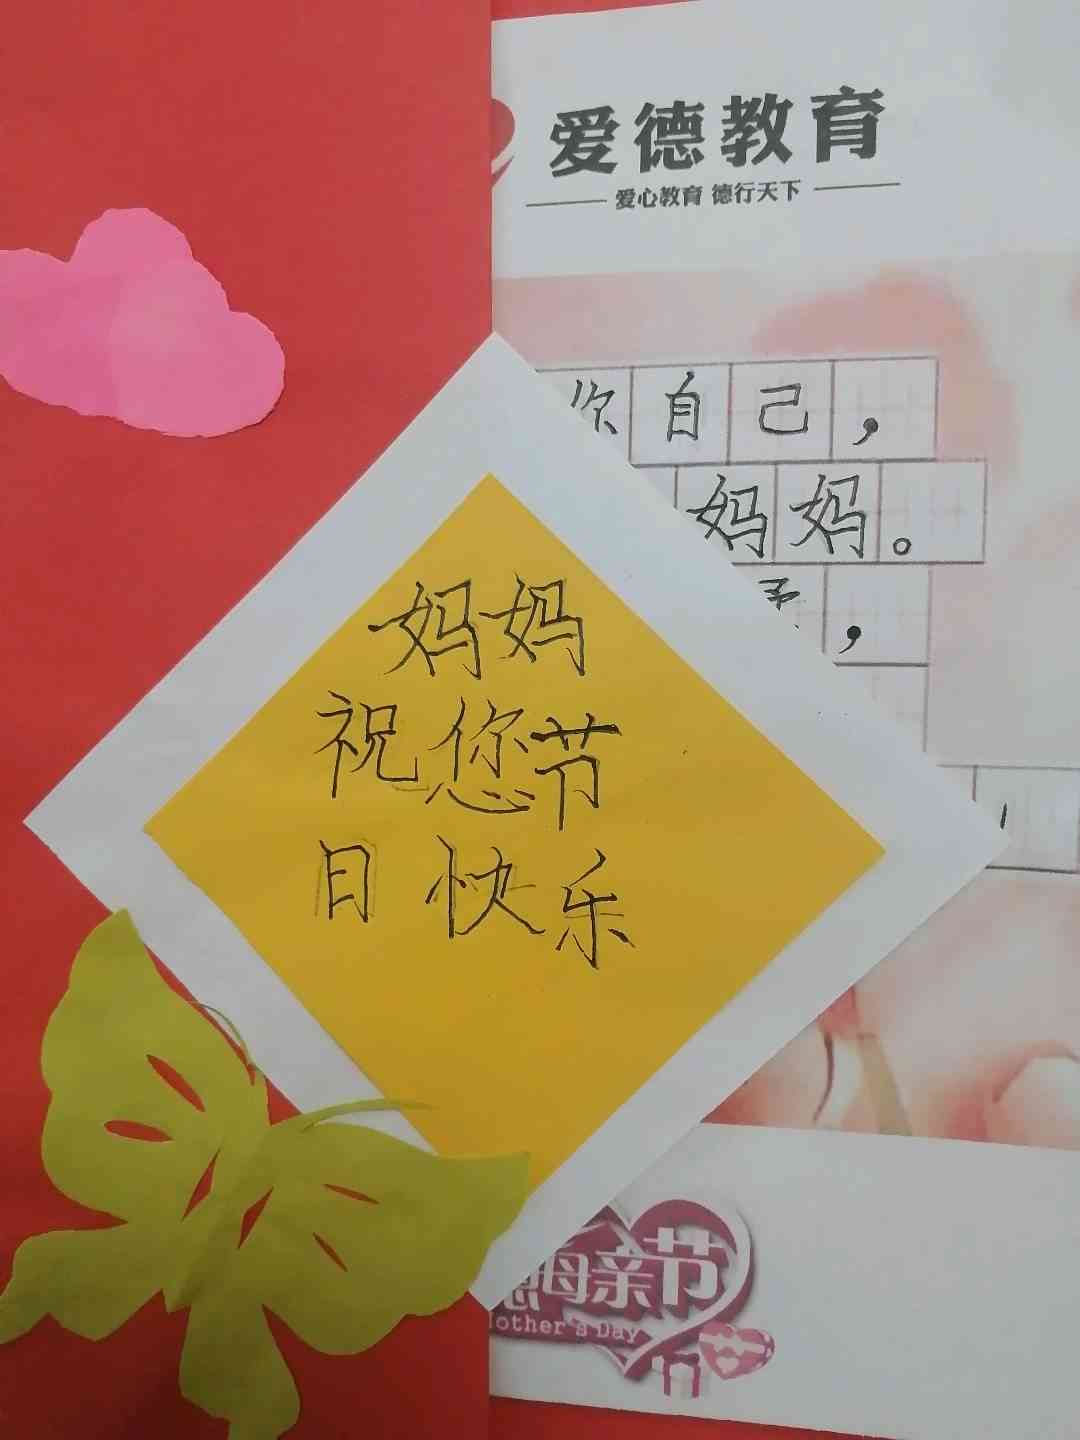 爱德教育
爱心教育 德行天下
你自己，
妈妈。
，
妈妈
祝您节
日快乐
母亲节
Mother's Day